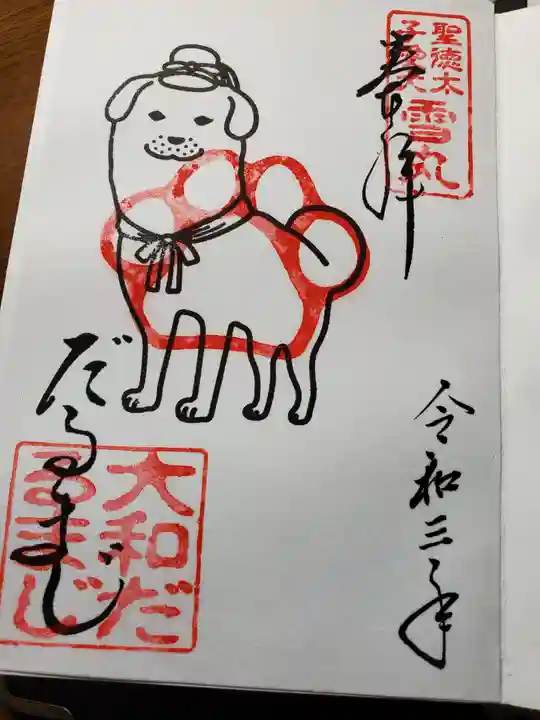 聖徳太
子愛犬
雪丸
奉拝
令和三年
だるまじ
大和だ
るまじ